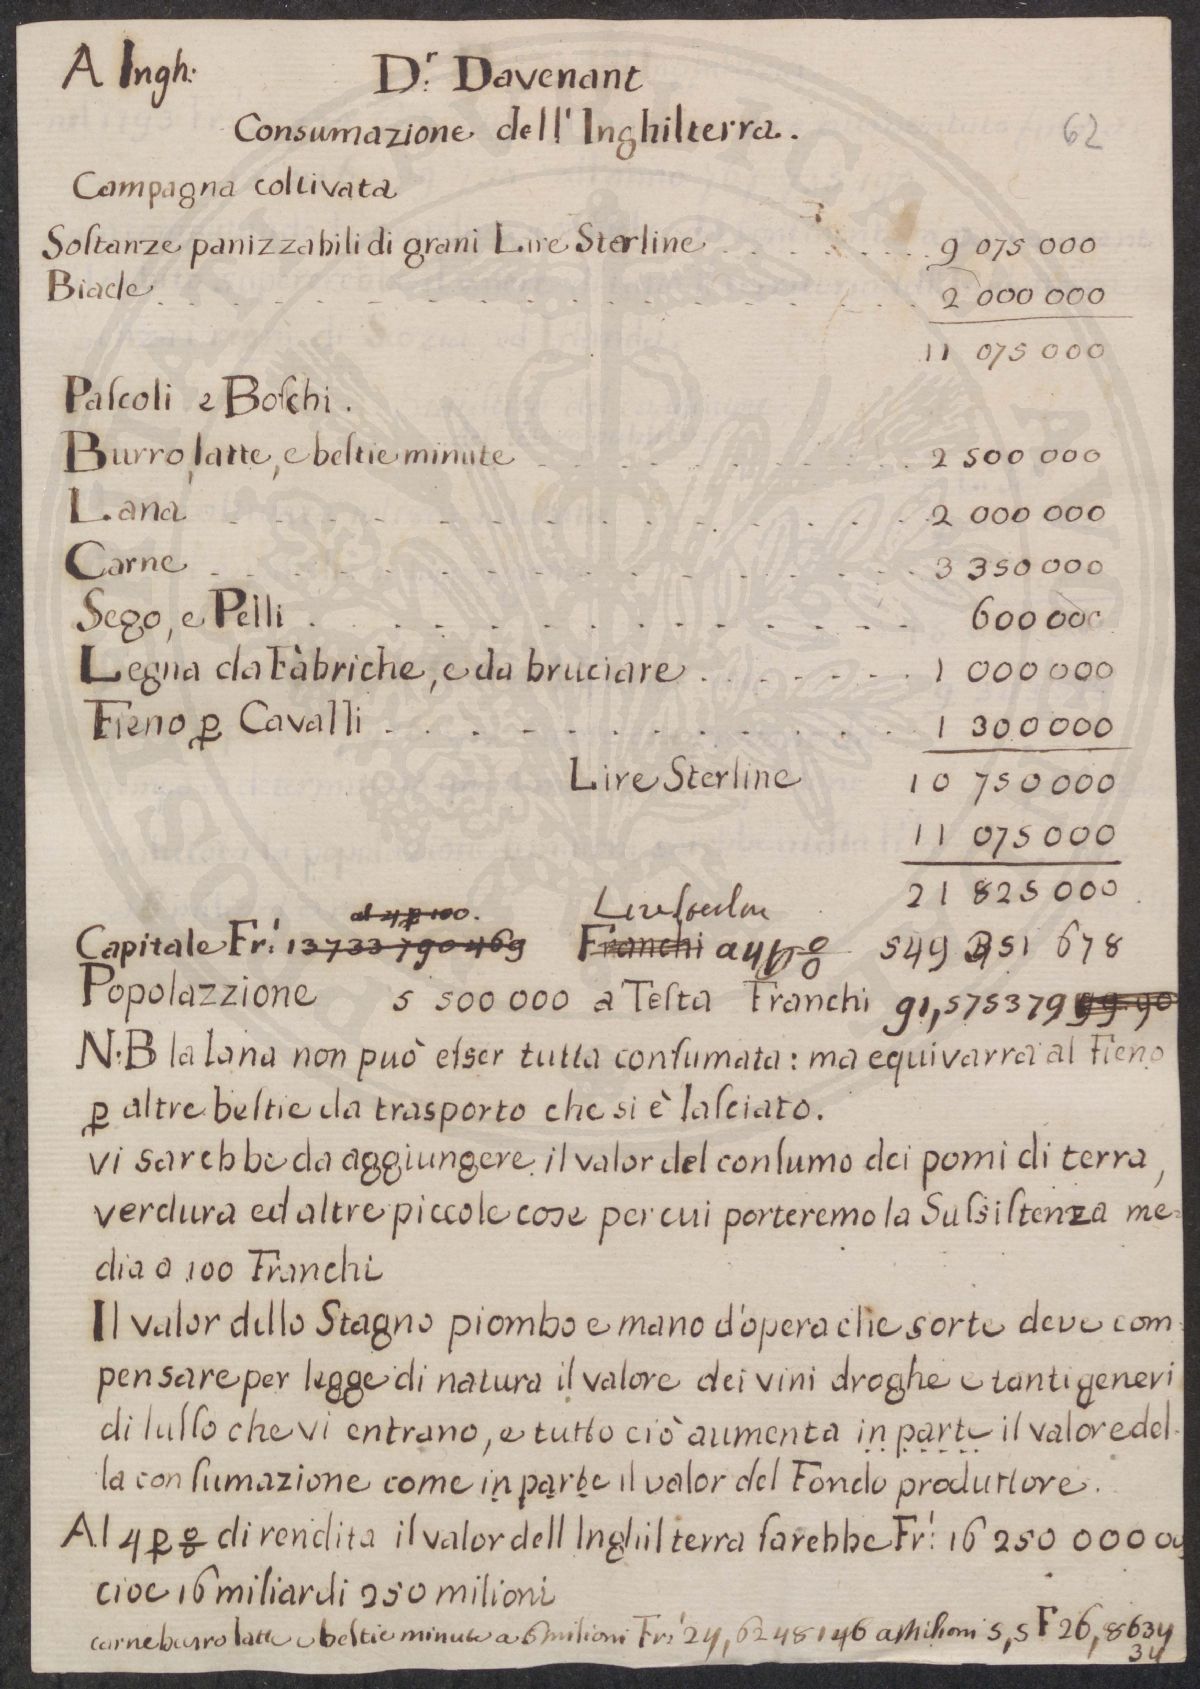 A Ingh:
D.r Davenant
Consumazione dell'Inghilterra.
62
Campagna coltivata
Sostanze panizzabili di grani Lire Sterline . . . . . . . . . 9 075 000
Biade . . . . . . . . . . . . . . . . . . 2 000 000
11 075 000
Pascoli e Boschi.
Burro, latte, e bestie minute . . . . . . . . . . . . 2 500 000
Lana . . . . . . . . . . . . . . . . . 2 000 000
Carne . . . . . . . . . . . . . . . . . 3 350 000
Sego, e Pelli . . . . . . . . . . . . . . . 600 000
Legna da Fàbriche, e da bruciare . . . . . . . 1 000 000
Fieno p Cavalli . . . . . . . . . . . . . 1 300 000
Lire Sterline 10 750 000
11 075 000
21 825 000
al 4 p 100. Lire sterline
Capitale Fr: 13733 790 469 Franchi a 4 p % 549 351 678
Popolazzione 5 500 000 a Testa Franchi 91,5753799 99.90
N:B la lana non può esser tutta consumata: ma equivarrà al Fieno
p altre bestie da trasporto che si è lasciato.
vi sarebbe da aggiungere il valor del consumo dei pomi di terra,
verdura ed altre piccole cose per cui porteremo la Sussistenza me=
dia a 100 Franchi
Il valor dello Stagno piombo e mano d'opera che sorte deve com
pensare per legge di natura il valore dei vini droghe e tanti generi
di lusso che vi entrano, e tutto ciò aumenta in parte il valore del-
la consumazione come in parte il valor del Fondo produttore.
Al 4 p % di rendita il valor dell Inghilterra sarebbe Fr: 16 250 000 00
cioe 16 miliardi 250 milioni
carne burro latte e bestie minute a 6 milioni Fr: 24,6248146 a Milioni 5,5 F 26,8634
34